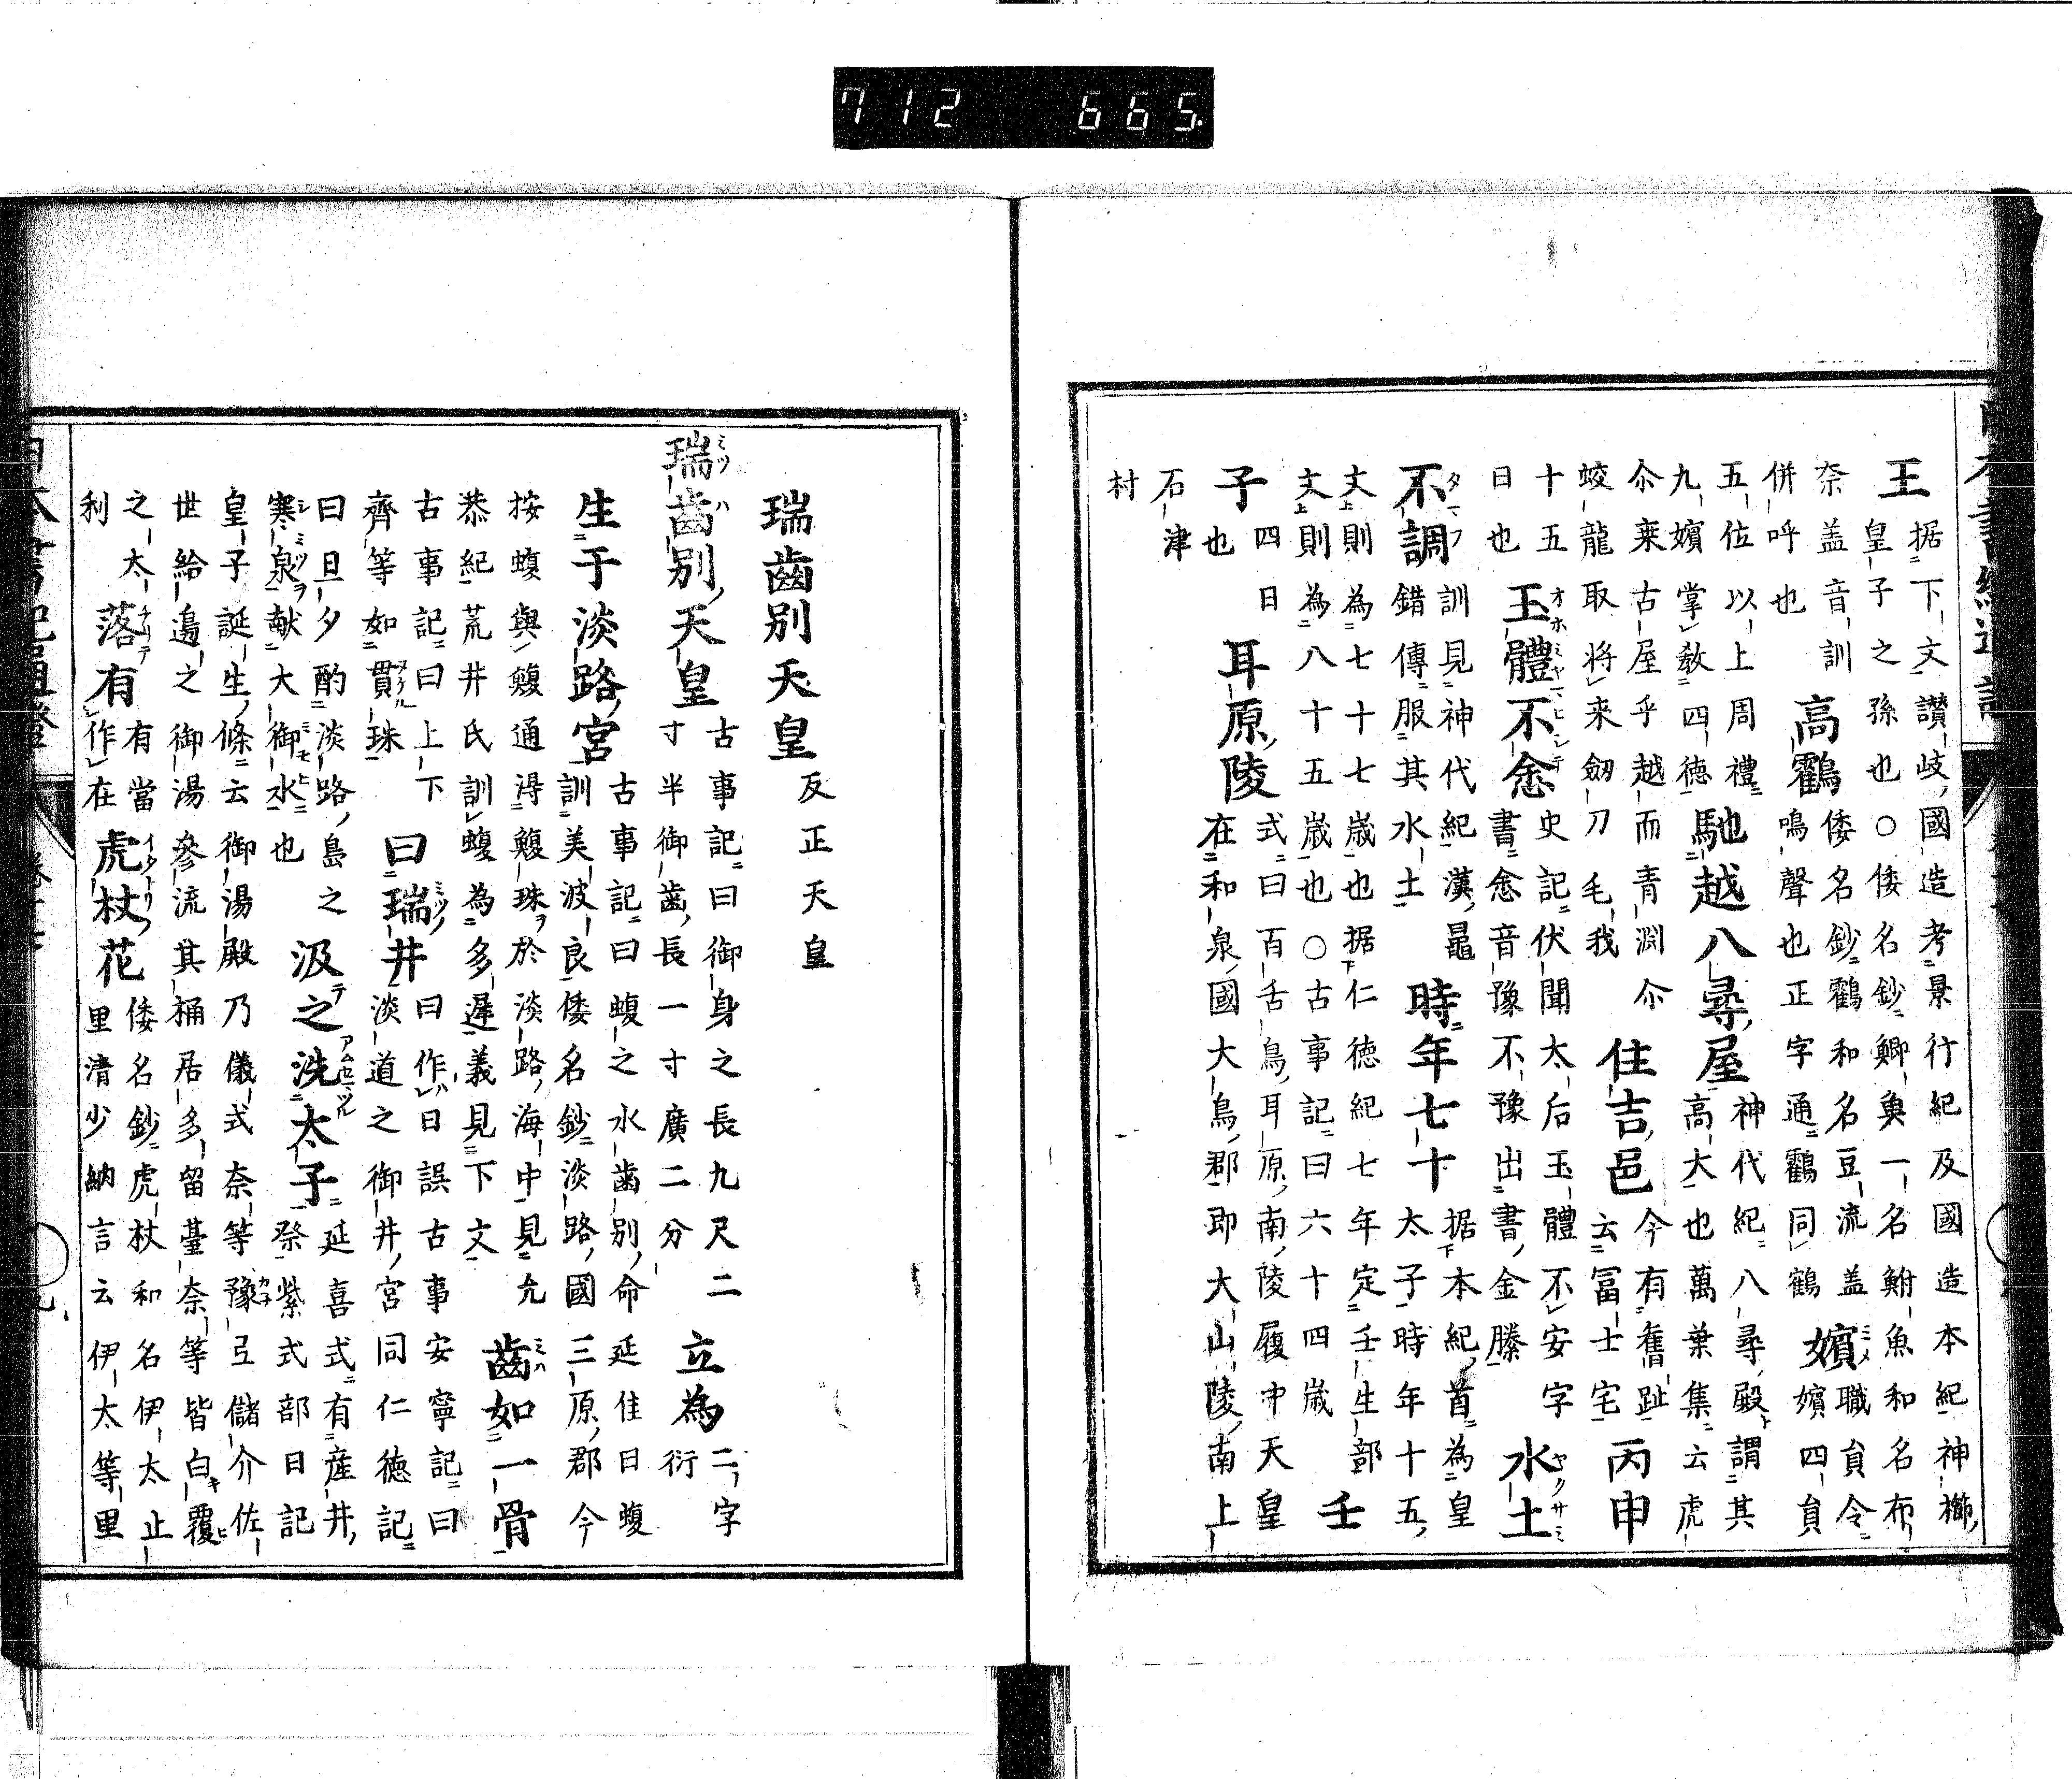 712 665
王
据下文讃岐國造考景行紀及國造本紀神櫛
皇子之孫也○倭名鈔鯽魚一名鮒魚和名布
奈盖音訓
併呼也
高鸖
倭名鈔鸖和名豆流盖
鳴聲也正字通鸖同鶴
嬪
職員令
嬪四員
五佐以上周禮
九嬪掌教四徳
馳越八尋屋
神代紀八尋殿謂其
高大也萬葉集云虎
尒乗古屋乎越而青淵尒
蛟龍取将来劔刀毛我
住吉邑
今有舊趾
云冨士宅
丙申
十五
日也
玉體不悆
史記伏聞太后玉體不安字
書悆音豫不豫出書金縢
水土
不調
訓見神代紀漢鼂
錯傳服其水土
時年七十
据本紀首為皇
太子時年十五
支則為七十七歳也据仁徳紀七年定壬生部
支則為八十五歳也○古事記曰六十四歳
壬
子
四日
也
耳原陵
式曰百舌鳥耳原南陵履中天皇
在和泉國大鳥郡即大山陵南上
石津
村
瑞齒別天皇
反正天皇
瑞齒別天皇
古事記曰御身之長九尺二
寸半御齒長一寸廣二分
立為
二字
衍
生于淡路宮
古事記曰蝮之水齒別命延佳曰蝮
訓美波良倭名鈔淡路國三原郡今
按蝮與鰒通淂鰒珠於淡路海中見允
恭紀荒井氏訓蝮為多遅義見下文
齒如一骨
古事記曰上下
齊等如貫珠
曰瑞井
曰作日誤古事安寧記曰
淡道之御井宮同仁徳記
曰旦夕酌淡路島之
寒泉献大御水也
汲之洗太子
延喜式有産井
祭紫式部日記
皇子誕生條云御湯殿乃儀式奈等豫弖儲介佐
世給邉之御湯參流其桶居多留臺奈等皆白覆
之太
利
落有
有當
作在
虎杖花
倭名鈔虎杖和名伊太止
里清少納言云伊太等里